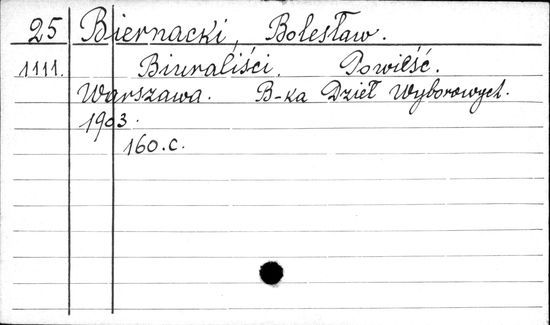 25 Biernacki, Bolesław.
1111. Biuraliści. Powieść.
Warszawa. B-ka Dzieł Wyborowych.
1903.
160.c.